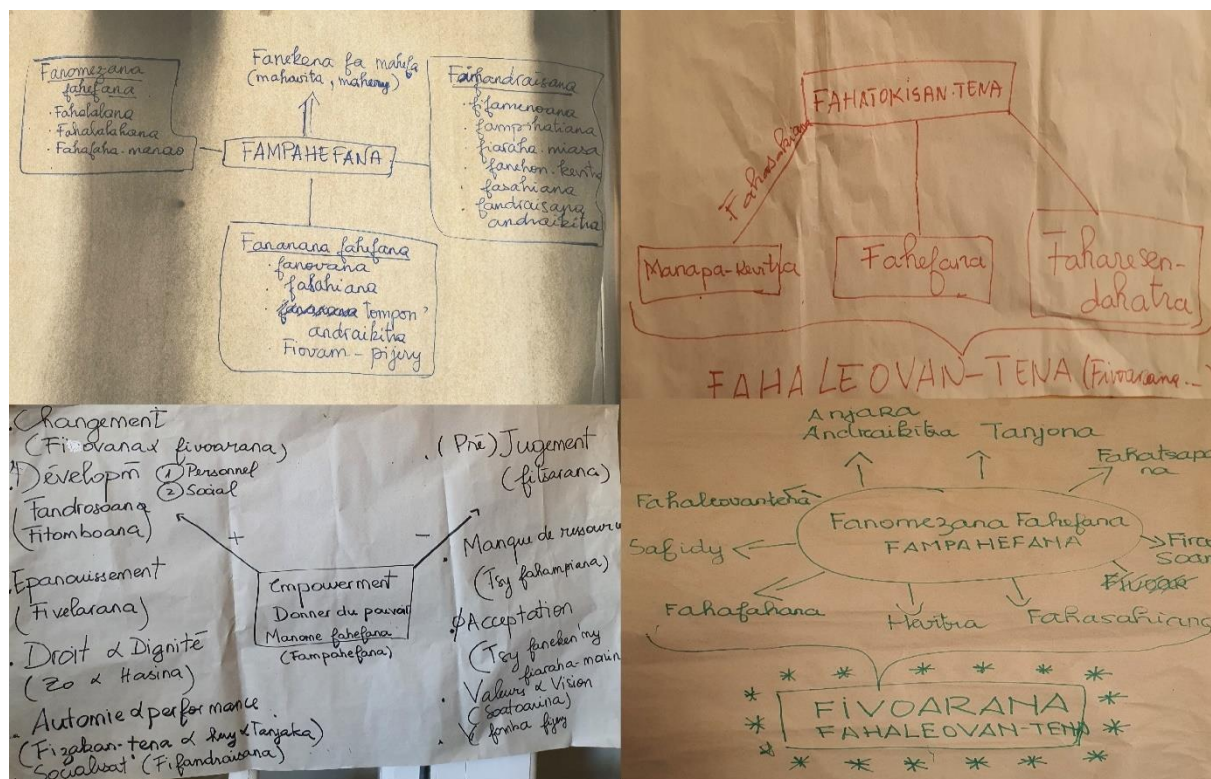 Fanomezana
fahefana
. Fahalalana
. Fahalalahana
. Fahafaha-manao
Fanekena fa mahefa
(mahavita, mahery)
FAMPAHEFANA
Fifandraisana
. fifamenoana
. fampihatiana
. fiaraha-miasa
. fanehoan-kevitra
. fasahiana
. fandraisana
andraikitra
Fananana fahefana
. fanovana
. fasahiana
. tompon'
andraikitra
Fiovam-pijery
FAHATOKISAN-TENA
Fahasahiana
Manapa-kevitra
Fahefana
Faharesen-
dahatra
FAHALEOVAN-TENA (Fivoarana...)
. Changement
(Fiovana & fivoarana)
Dévelopm
① Personnel
② Social
(Fandrosoana
(Fitomboana)
. Epanouissement
(Fivelarana)
. Droit & Dignité
(Zo & Hasina)
. Automie & performance
(Fizakan-tena & hery & Tanjaka)
Socialisat° (Fifandraisana)
+
-
Empowerment
Donner du pouvoir
Manome fahefana
(Fampahefana)
. (Pré) Jugement
(fitsarana)
. Manque de ressource
(Tsy fahampiana)
Acceptation
(Tsy faneken'ny
fiaraha-monin
. Valeurs & Vision
Anjara
Andraikitra
Tanjona
Fahatsapa
na
Fahaleovantena
Fanomezana Fahefana
FAMPAHEFANA
Safidy
Fira
Soan
Fivoar
Fahafahana
Hevitra
Fahasahiana
FIVOARANA
FAHALEOVAN-TENA